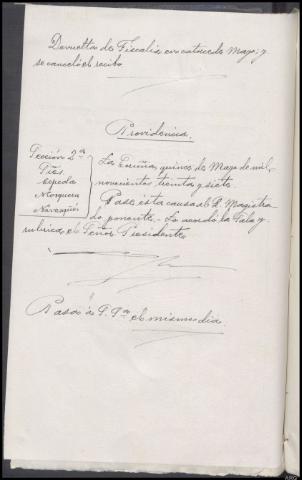 Devuelta de Fiscalía en catorce de Mayo; y
se canceló el recibo
Providencia,
Sección 2ª
Sres.
Cepeda
Norguera
La Coruña, quince de Mayo de mil,
novecientos, treinta y siete.
Pase esta causa al S. Magistra
do ponente.- Lo acordó la Sala y
rubrica el Señor Presidente.
Pasó á el mismo día.